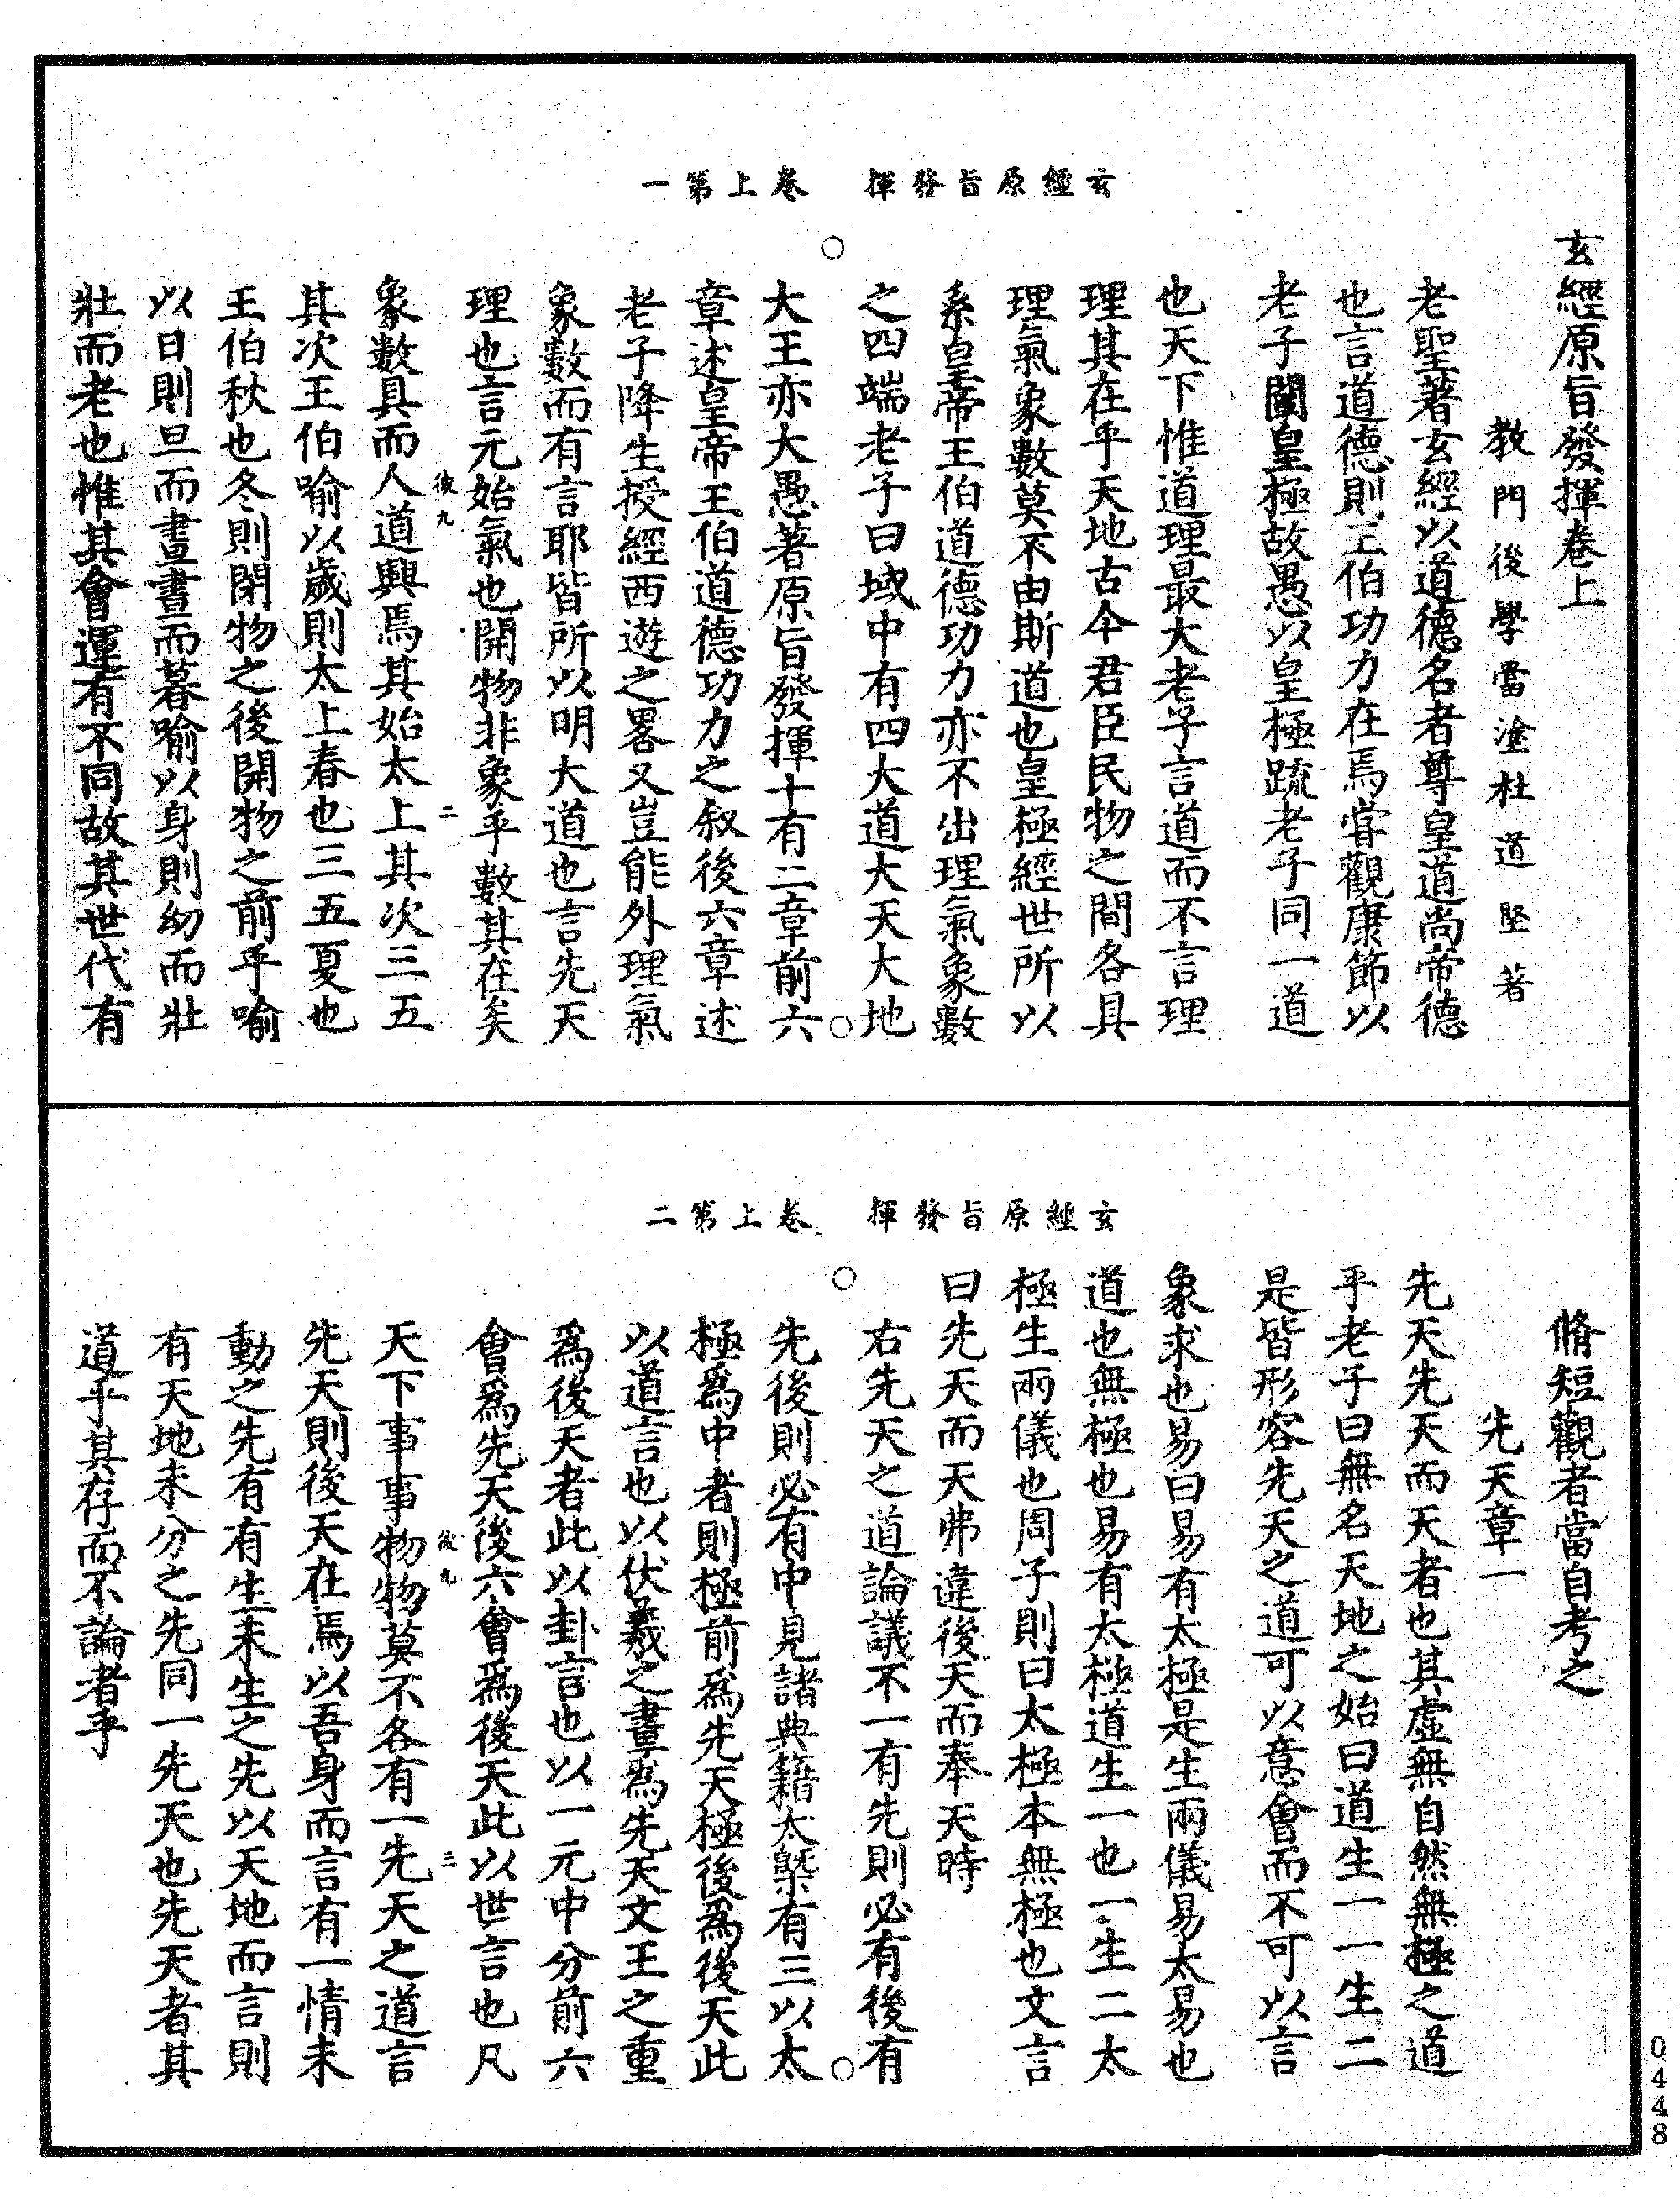 玄經原旨發揮　卷上第一
玄經原旨發揮卷上
教門後學當塗杜道堅著
老聖著玄經以道德名者尊皇道尚帝德
也言道德則王伯功力在焉嘗觀康節以
老子闡皇極故愚以皇極䟽老子同一道
也天下惟道理最大老子言道而不言理
理其在乎天地古今君臣民物之間各具
理氣象數莫不由斯道也皇極經世所以
系皇帝王伯道德功力亦不出理氣象數
之四端老子曰域中有四大道大天大地
大王亦大愚著原旨發揮十有二章前六
章述皇帝王伯道德功力之叙後六章述
老子降生授經西遊之畧又豈能外理氣
象數而有言耶皆所以明大道也言先天
理也言元始氣也開物非象乎數其在矣
彼九
二
象數具而人道興焉其始太上其次三五
其次王伯喻以歲則太上春也三五夏也
王伯秋也冬則閉物之後開物之前乎喻
以日則旦而晝晝而暮喻以身則幼而壯
壯而老也惟其會運有不同故其世代有
玄經原旨發揮　卷上第二
脩短觀者當自考之
先天章一
先天先天而天者也其虛無自然無極之道
乎老子曰無名天地之始曰道生一一生二
是皆形容先天之道可以意會而不可以言
象求也易曰易有太極是生兩儀易太易也
道也無極也易有太極道生一也一生二太
極生兩儀也周子則曰太極本無極也文言
曰先天而天弗違後天而奉天時
右先天之道論議不一有先則必有後有
先後則必有中見諸典籍太槩有三以太
極爲中者則極前爲先天極後爲後天此
以道言也以伏羲之畫爲先天文王之重
爲後天者此以卦言也以一元中分前六
會爲先天後六會爲後天此以世言也凡
彼九
三
天下事事物物莫不各有一先天之道言
先天則後天在焉以吾身而言有一情未
動之先有有生未生之先以天地而言則
有天地未分之先同一先天也先天者其
道乎其存而不論者乎
0448